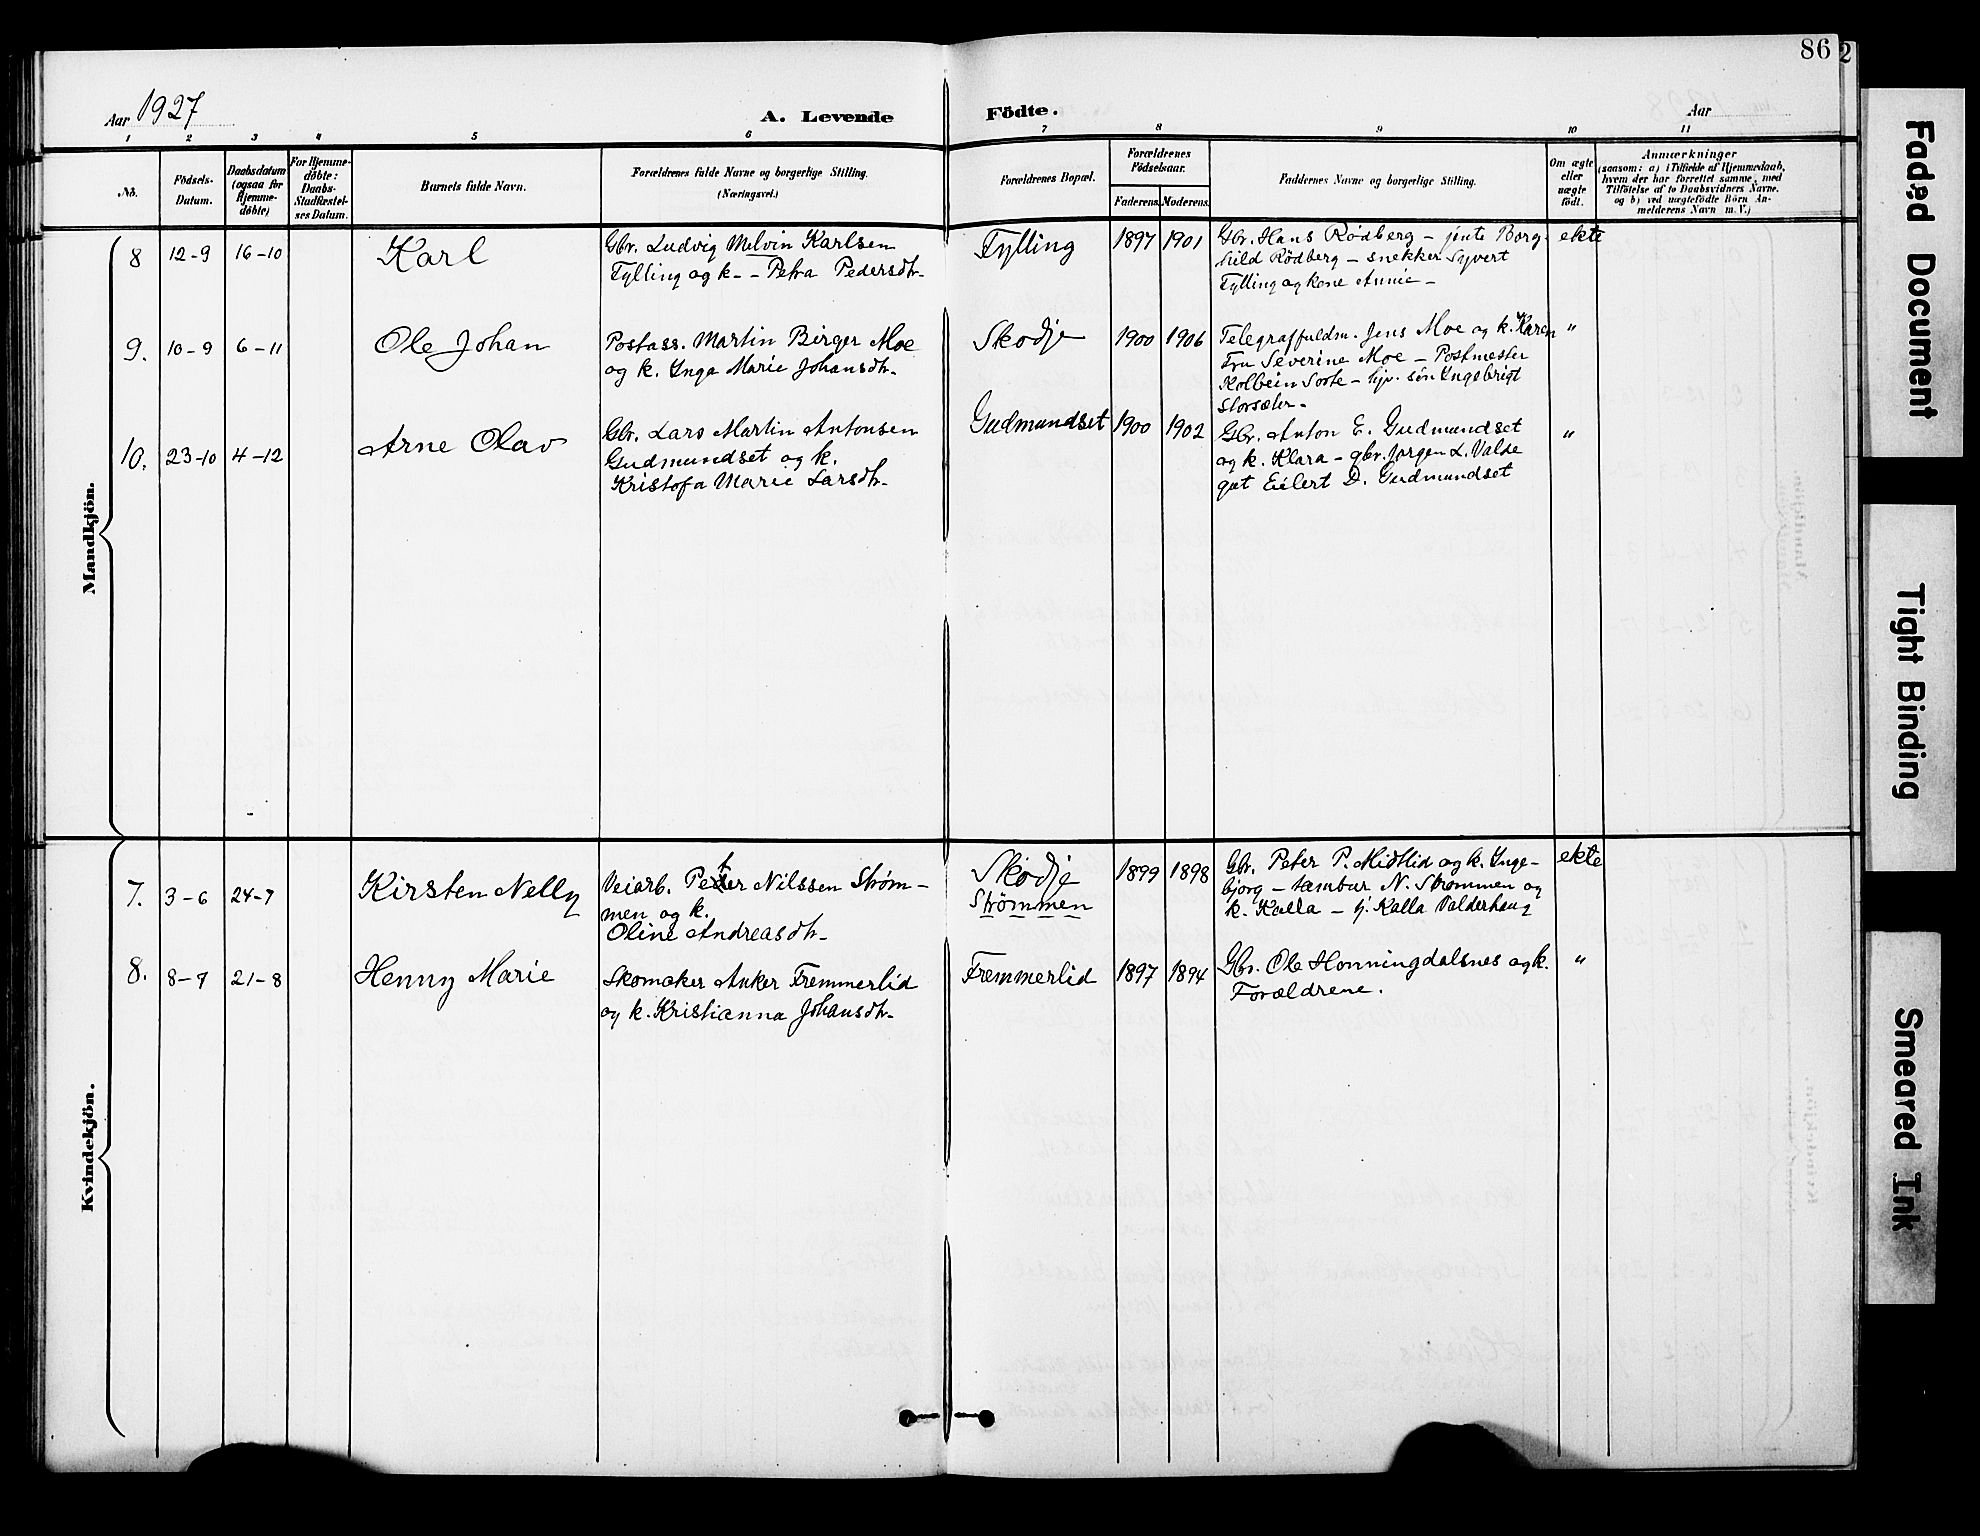 86
2
Aar 1927
A. Levende Födte.
Aar
1 2 3 4 5 6 7 8 9 10 11
No. Födsels-Datum. Daabsdatum (ogsaa for Hjemme-døbte) For Hjemme-døbte: Daabs-Stadfæstel-ses Datum. Barnets fulde Navn. Forældrenes fulde Navne og borgerlige Stilling. (Næringsvei.) Forældrenes Bopæl. Forældrenes Födselsaar. Faderens. Moderens. Faddernes Navne og borgerlige Stilling. Om ægte eller uægte födt. Anmærkninger (saasom: a) i Tilfælde af Hjemmedaab, hvem der har forrettet samme, med Tilföielse af to Daabsvidners Navne, og b) ved uægtefödte Börn An-melderens Navn m. V.)
Mandkjön.
8 12-9 16-10 Karl
Gbr. Ludvig Melvin Karlsen
Tylling og k. - Petra Pedersdtr.
Tylling 1897 1901
Gbr. Hans Rødberg – jente Borg-
hild Rødberg – snekker Syvert
Tylling og kone Annie –
ekte
9. 10-9 6-11 Ole Johan
Postass. Martin Birger Moe
og k. Inga Marie Johansdtr.
Skodje 1900 1906
Telegraffuldm. Jens Moe og k. Karen
Fru Severine Moe – Postmester
Kolbein Soote – hjv. søn Ingebrigt
Storsæter.
"
10. 23-10 4-12 Arne Olav
Gbr. Lars Martin Antonsen
Gudmundset og k.
Kristofa Marie Larsdtr.
Gudmundset 1900 1902
Gbr. Anton E. Gudmundset
og k. Klara – gbr. Jørgen L. Valde
gut Eilert D. Gudmundset
"
Kvindekjön.
7. 3-6 24-7 Kirsten Nelly
Veiarb. Peter Nilssen Strøm-
men og k.
Oline Andreasdtr.
Skodje
Strømmen
1899 1898
Gbr. Peter P. Midtlid og k. Inge-
bjørg – tambur N. Strømmen og
k. Kalla – Kalla Valderhaug
ekte
8. 8-7 21-8 Henny Marie
Skomaker Anker Fremmerlid
og k. Kristianna Johansdtr.
Fremmerlid 1897 1894
Gbr. Ole Honningdalsnes og k.
Forældrene.
"
Faded Document
Tight Binding
Smeared Ink